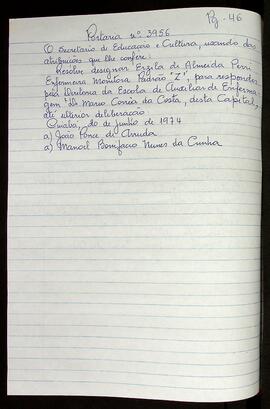 Pg. 46
Portaria nº 3956
O Secretario de Educação e Cultura, usando das
atribuições que lhe confere:
Resolve designar Erzila de Almeida Perri
Enfermeira Monitora Padrão "Z", para responder
pela Diretoria da Escola de Auxiliar de Enferma
gem "Dr. Mario Corrêa da Costa, desta Capital,
até ulterior deliberação.
Cuiabá, 10 de junho de 1974
a) João Ponce de Arruda
a) Manoel Bonifacio Nunes da Cunha